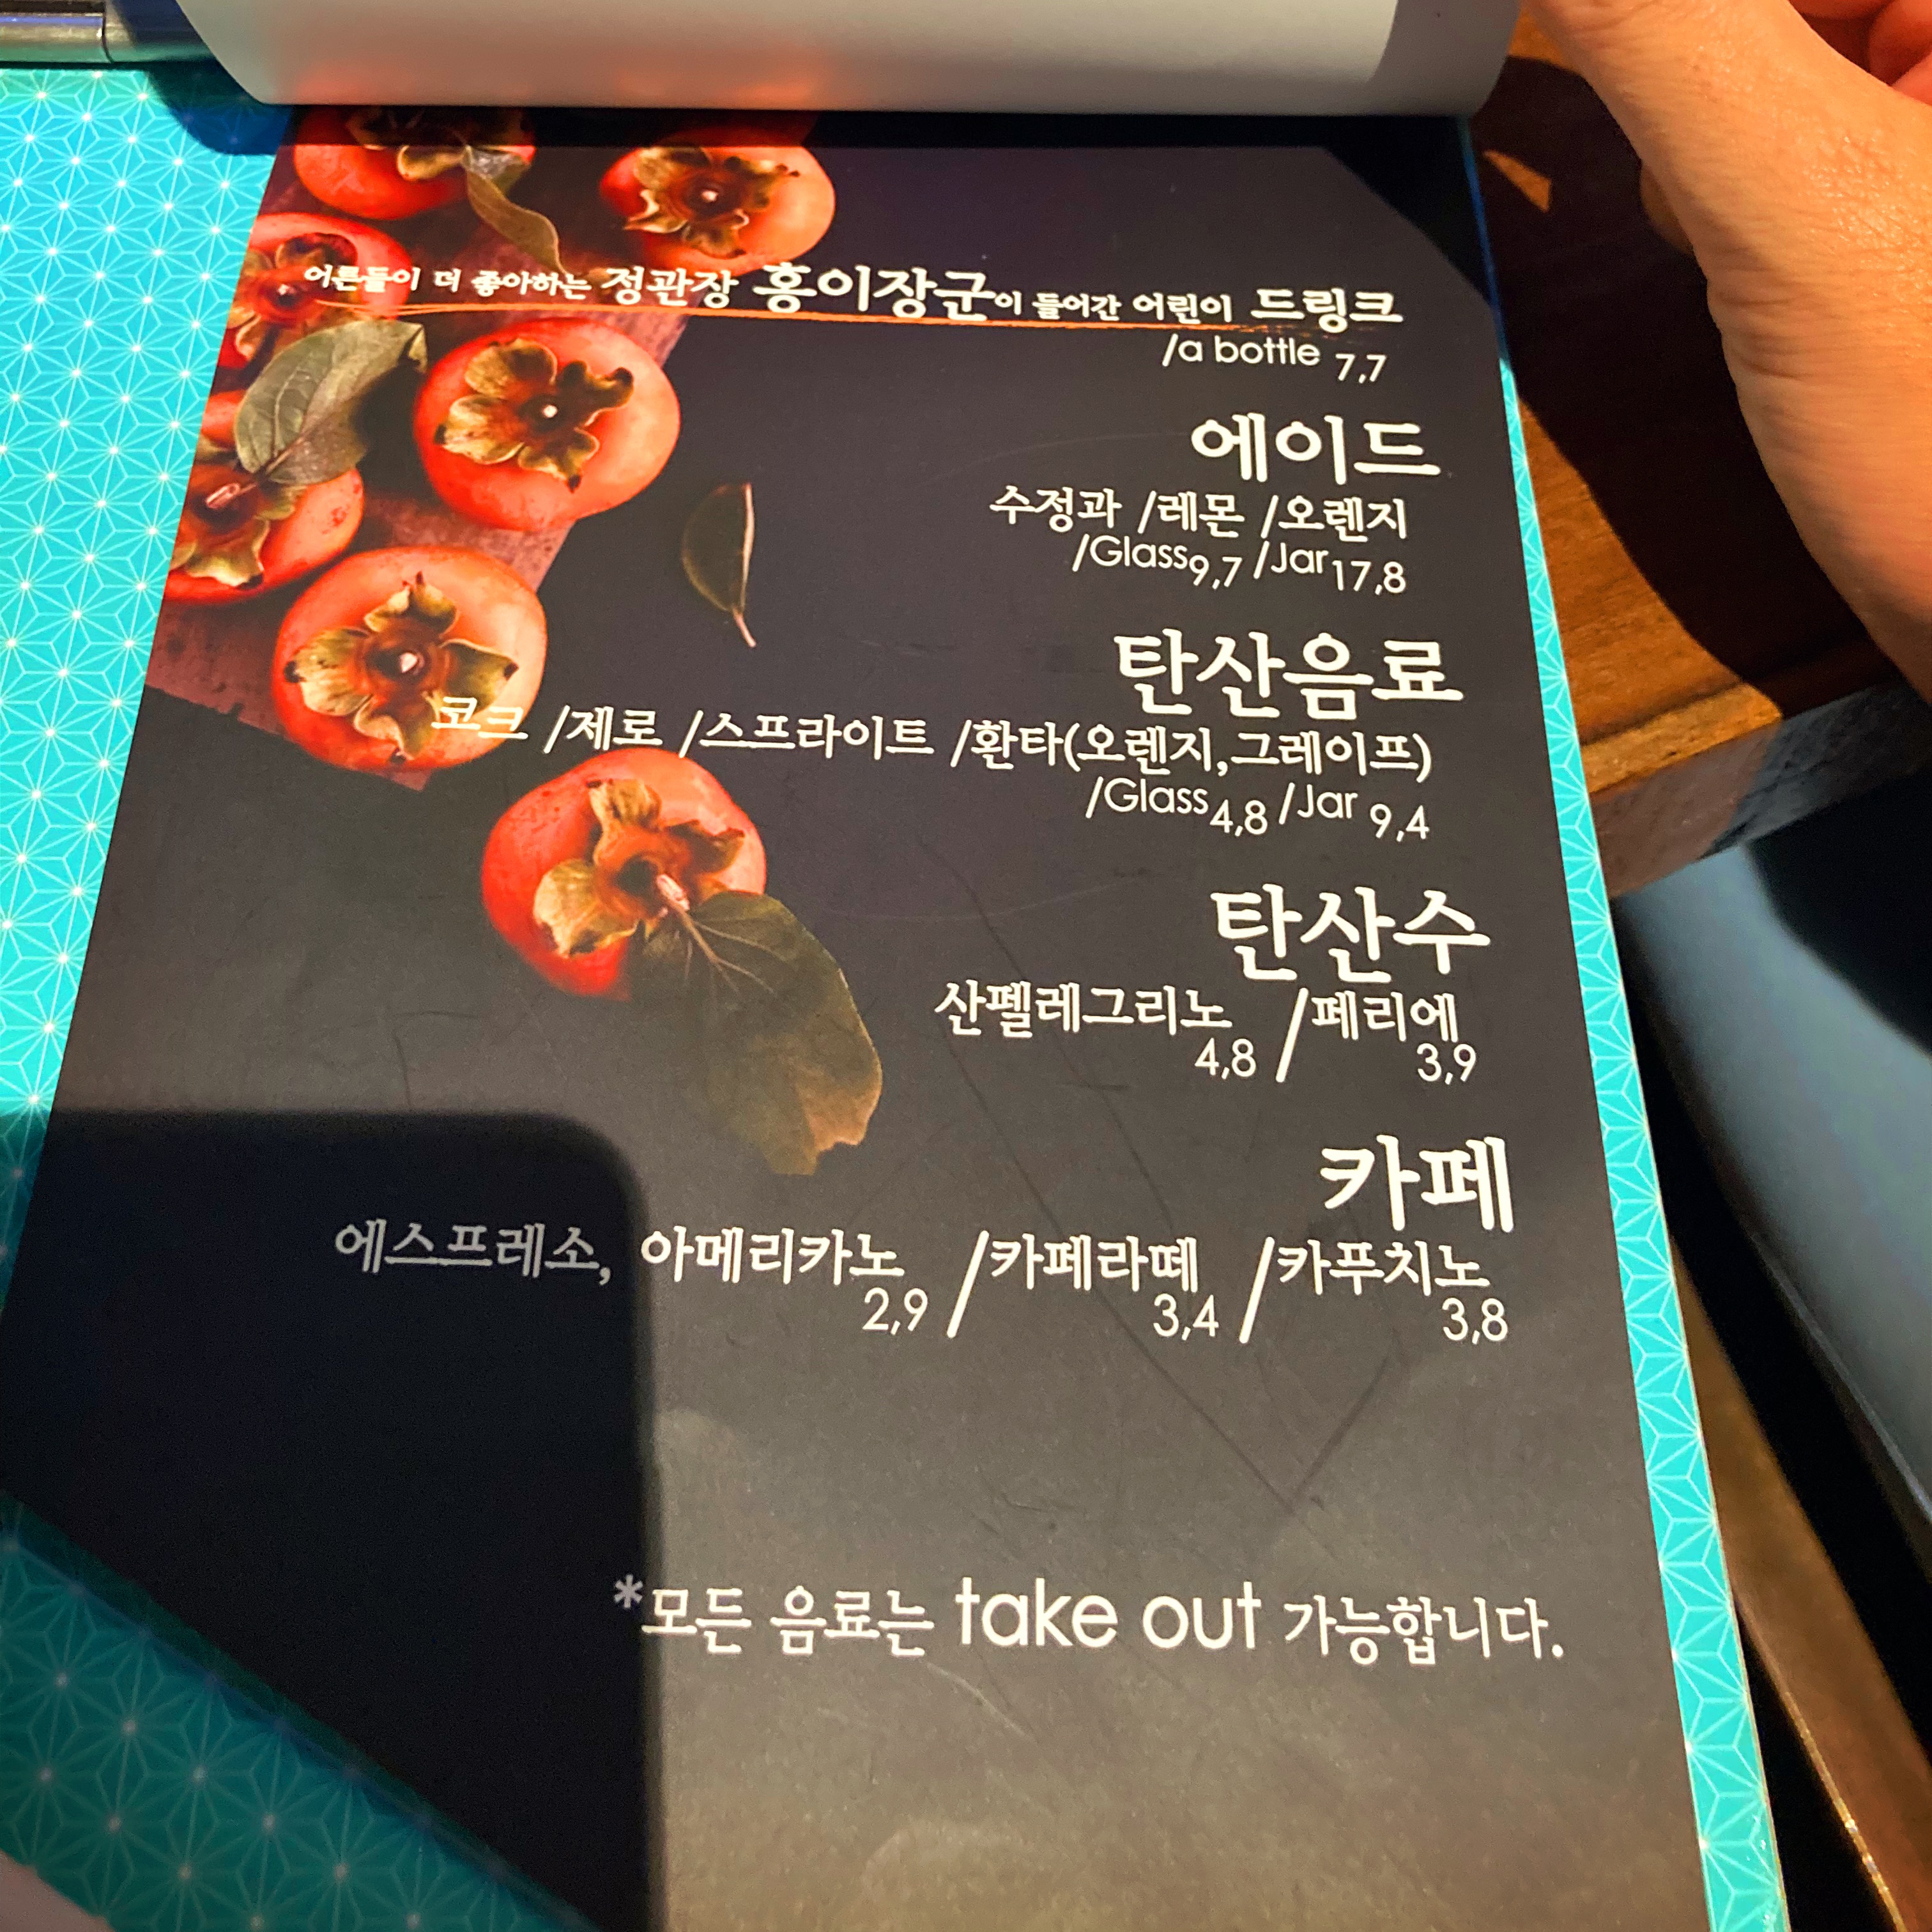 어른들이 더 좋아하는 정관장 홍이장군이 들어간 어린이 드링크
/a bottle 7,7
에이드
수정과 /레몬 /오렌지
/Glass 9,7 /Jar 17,8
탄산음료
코크 /제로 /스프라이트 /환타(오렌지,그레이프)
/Glass 4,8 /Jar 9,4
탄산수
산펠레그리노 /페리에
4,8 3,9
카페
에스프레소, 아메리카노 /카페라떼 /카푸치노
2,9 3,4 3,8
*모든 음료는 take out 가능합니다.